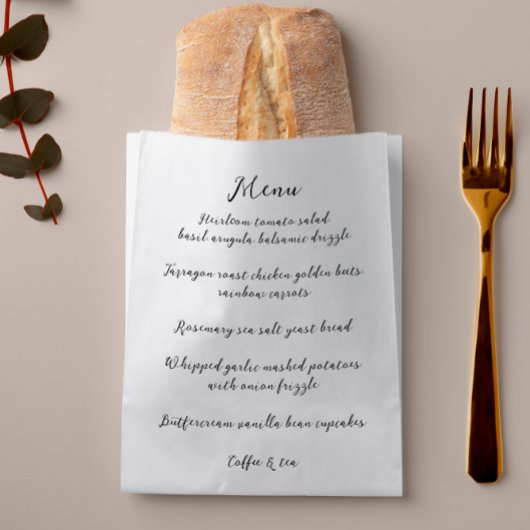 Menu
Heirloom tomato salad
basil arugula balsamic drizzle
Tarragon roast chicken golden beets
rainbow carrots
Rosemary sea salt yeast bread
Whipped garlic mashed potatoes
with onion frizzle
Buttercream vanilla bean cupcakes
Coffee & tea